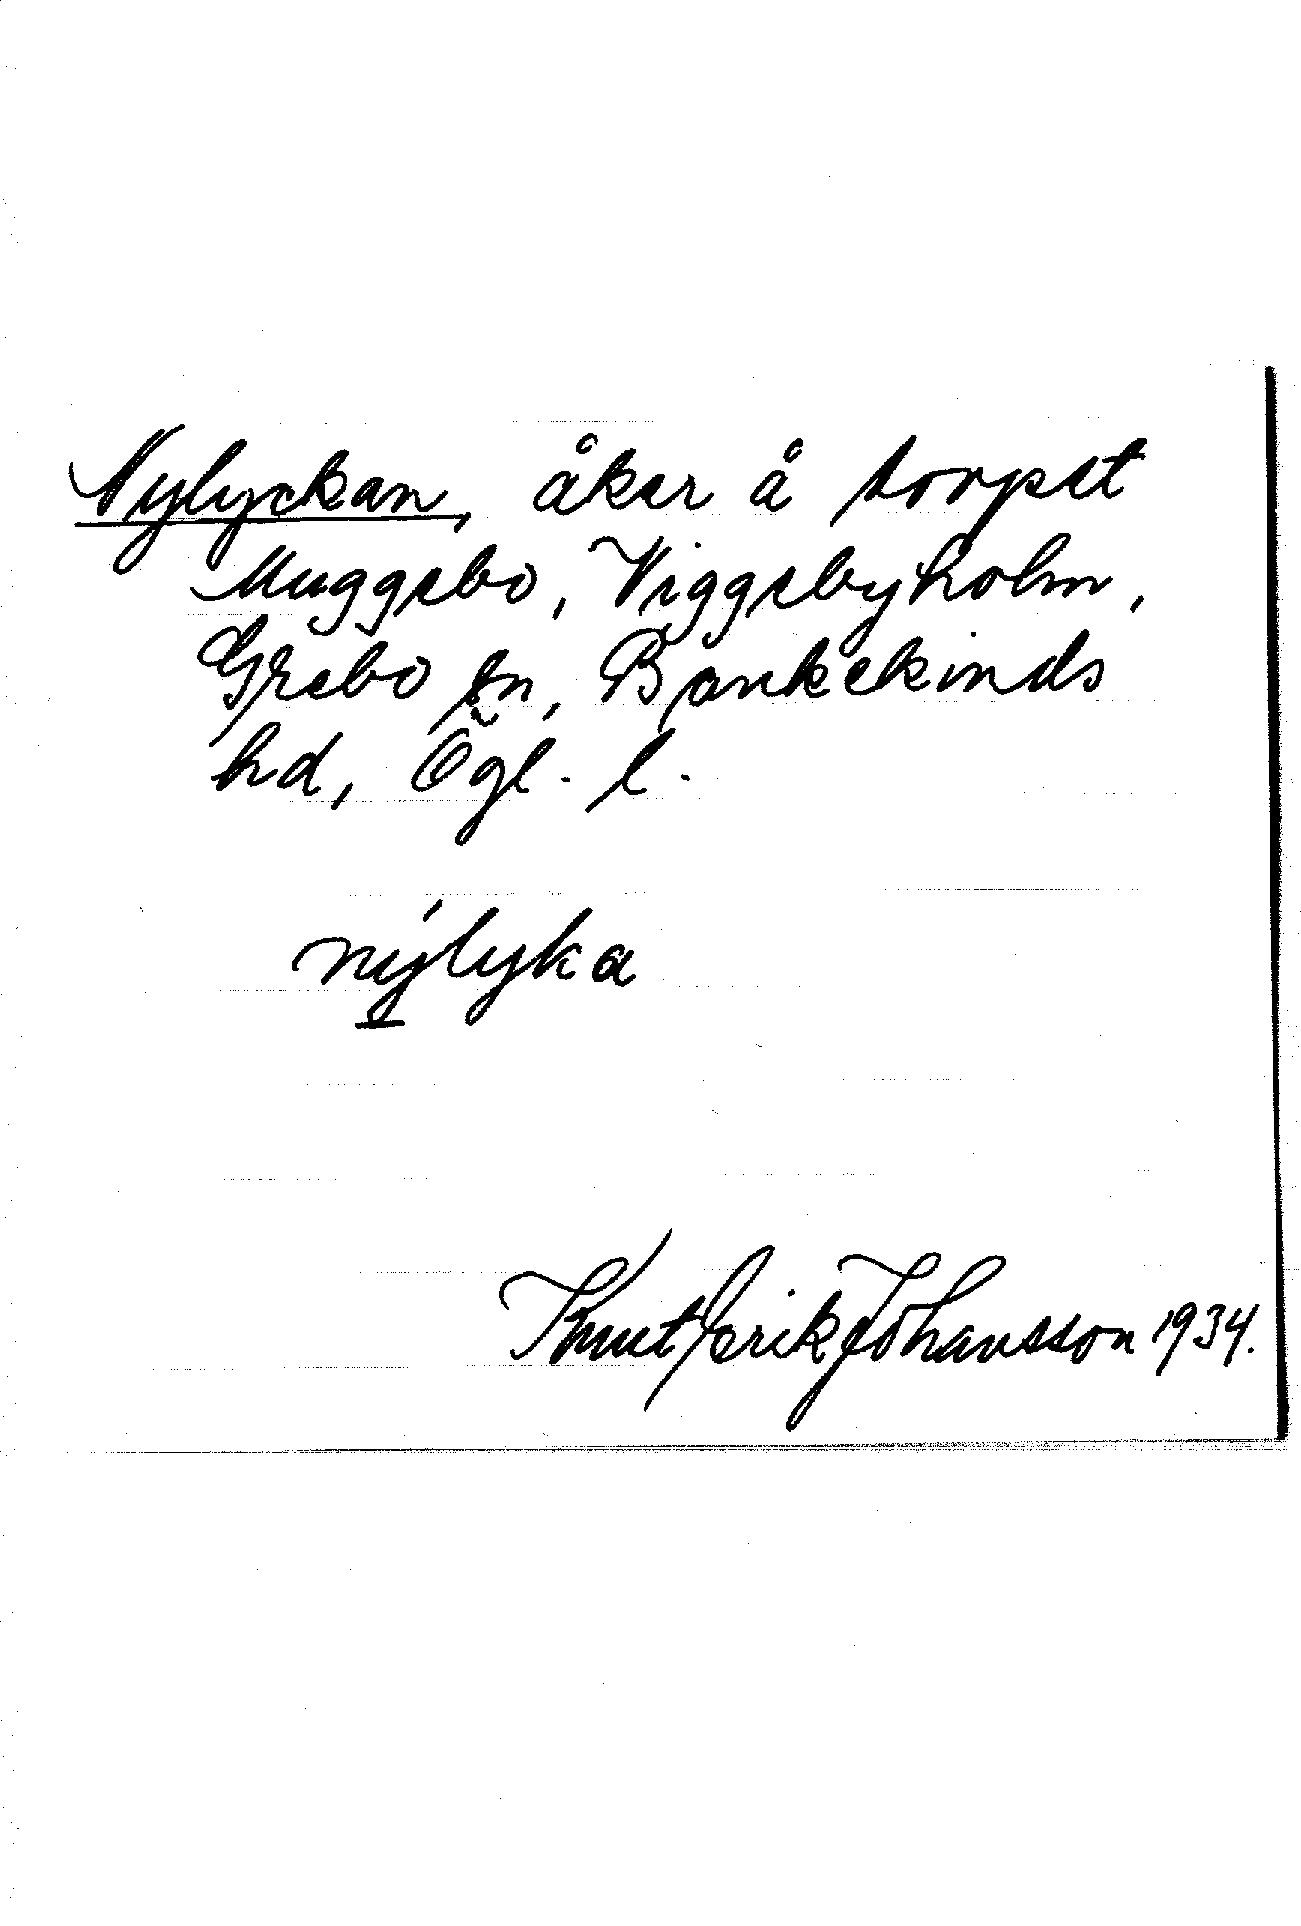 Nylyckan, åker å torpet
Muggebo, Viggebyholm,
Grebo sn, Bankekinds
hd, Ögl. l.
nýlyka
Knut Erik Johansson 1934.